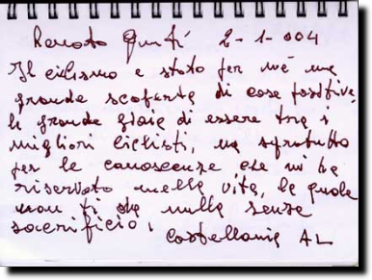 Renato Giusti 2-1-004
Il ciclismo e stato per me una
grande scoperta di cose positive,
la grande gioia di essere tra i
migliori ciclisti, ma soprattutto
per le conoscenze che mi ha
riservato nella vita, la quale
non ti da nulla senza
sacrificio.
Castellania AL